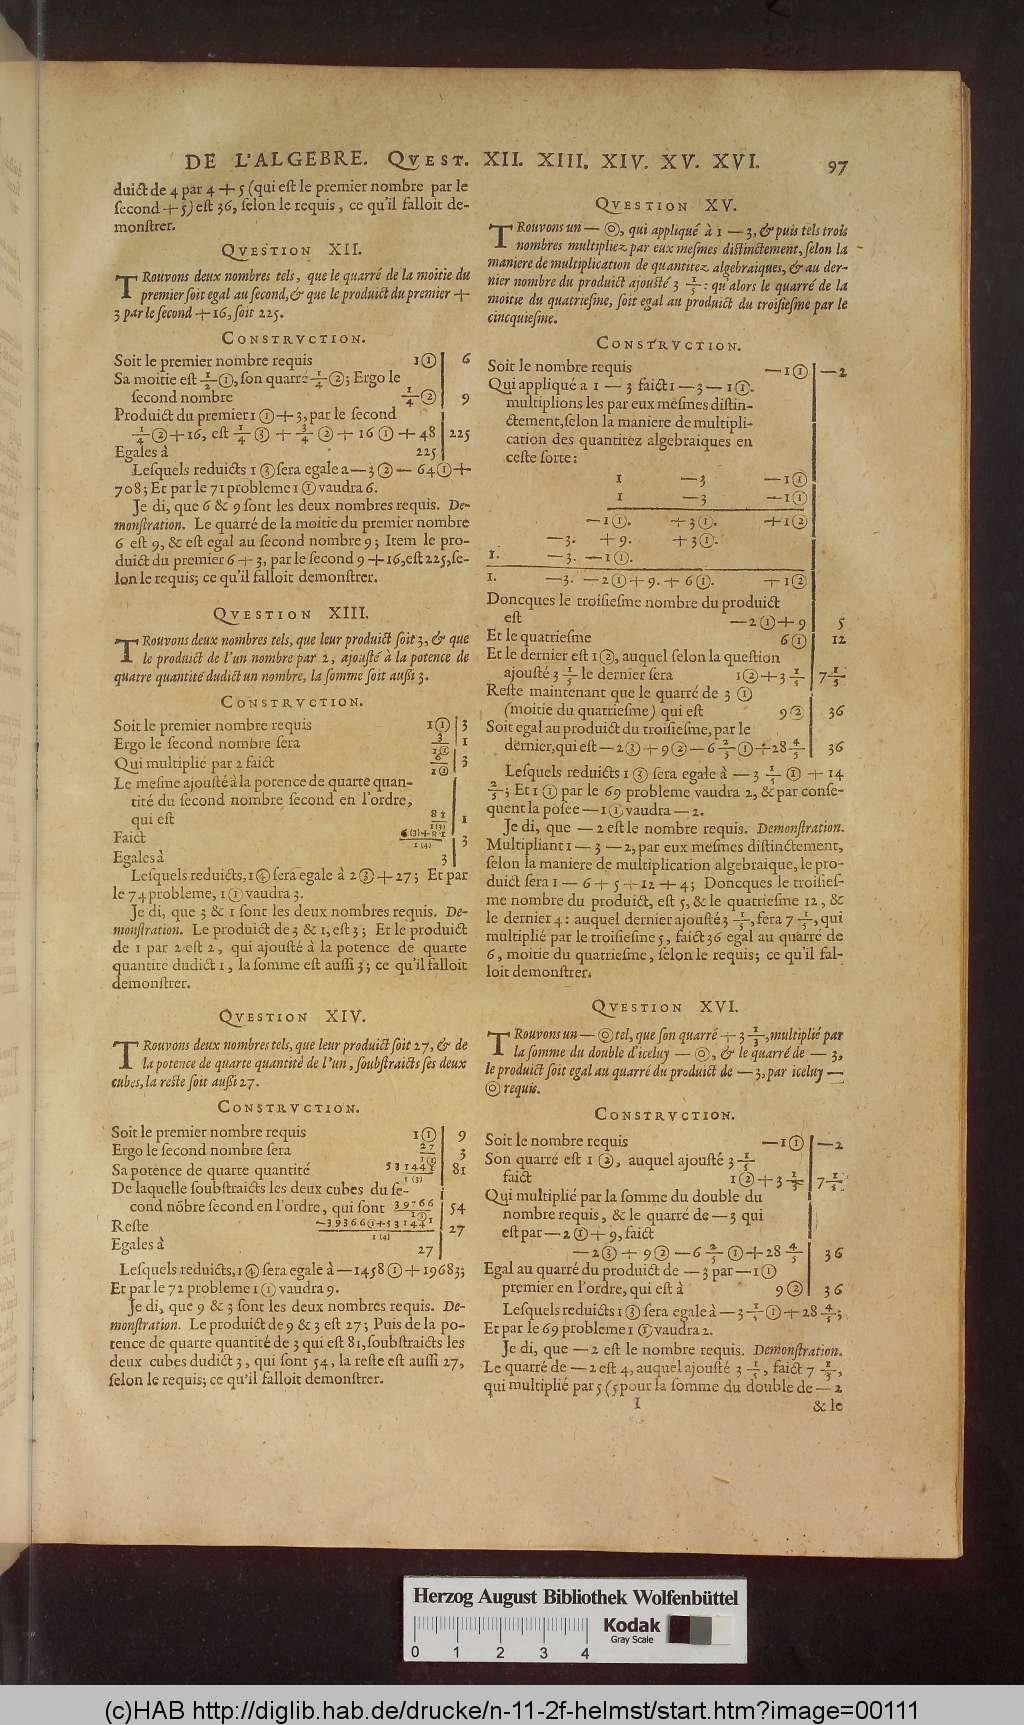 DE L'ALGEBRE. QVEST. XII. XIII. XIV. XV. XVI. 97
duict de 4 par 4 + 5 (qui eſt le premier nombre par le
ſecond + 5) eſt 36, ſelon le requis, ce qu'il falloit de-
monſtrer.
QVESTION XII.
TRouvons deux nombres tels, que le quarré de la moitie du
premier ſoit egal au ſecond, & que le produict du premier +
3 par le ſecond + 16, ſoit 225.
CONSTRVCTION.
Soit le premier nombre requis 1① | 6
Sa moitie eſt 1/2 ①, ſon quarré 1/4 ②; Ergo le
ſecond nombre 1/4 ② | 9
Produict du premier 1 ① + 3, par le ſecond
1/4 ② + 16, eſt 1/4 ③ + 3/4 ② + 16 ① + 48 | 225
Egales à 225 |
Leſquels reduicts 1 ③ ſera egale a — 3 ② — 64 ① +
708; Et par le 71 probleme 1 ① vaudra 6.
Je di, que 6 & 9 ſont les deux nombres requis. De-
monſtration. Le quarré de la moitie du premier nombre
6 eſt 9, & eſt egal au ſecond nombre 9; Item le pro-
duict du premier 6 + 3, par le ſecond 9 + 16, eſt 225, ſe-
lon le requis; ce qu'il falloit demonſtrer.
QVESTION XIII.
TRouvons deux nombres tels, que leur produict ſoit 3, & que
le produict de l'un nombre par 2, ajouſté à la potence de
quatre quantité dudict un nombre, la ſomme ſoit auſsi 3.
CONSTRVCTION.
Soit le premier nombre requis 1① | 3
Ergo le ſecond nombre ſera 3/1① | 1
Qui multiplié par 2 faict 6/1① | 3
Le meſme ajouſté à la potence de quarte quan-
tité du ſecond nombre ſecond en l'ordre,
qui eſt | 1
Faict | 3
Egales à 3 |
Leſquels reduicts, 1④ ſera egale à 2 ③ + 27; Et par
le 74 probleme, 1 ① vaudra 3.
Je di, que 3 & 1 ſont les deux nombres requis. De-
monſtration. Le produict de 3 & 1, eſt 3; Et le produict
de 1 par 2 eſt 2, qui ajouſté à la potence de quarte
quantité dudict 1, la ſomme eſt auſſi 3; ce qu'il falloit
demonſtrer.
QVESTION XIV.
TRouvons deux nombres tels, que leur produict ſoit 27, & de
la potence de quarte quantité de l'un, ſoubſtraicts ſes deux
cubes, la reſte ſoit auſsi 27.
CONSTRVCTION.
Soit le premier nombre requis 1① | 9
Ergo le ſecond nombre ſera 27/1① | 3
Sa potence de quarte quantité | 81
De laquelle ſoubſtraicts les deux cubes du ſe-
cond nõbre ſecond en l'ordre, qui ſont | 54
Reſte | 27
Egales à 27 |
Leſquels reduicts, 1 ④ ſera egale à — 1458 ① + 19683;
Et par le 72 probleme 1 ① vaudra 9.
Je di, que 9 & 3 ſont les deux nombres requis. De-
monſtration. Le produict de 9 & 3 eſt 27; Puis de la po-
tence de quarte quantité de 3 qui eſt 81, ſoubſtraicts les
deux cubes dudict 3, qui ſont 54, la reſte eſt auſſi 27,
ſelon le requis; ce qu'il falloit demonſtrer.
QVESTION XV.
TRouvons un — ⓪, qui appliqué à 1 — 3, & puis tels trois
nombres multipliez par eux meſmes diſtinctement, ſelon la
maniere de multiplication de quantitez algebraiques, & au der-
nier nombre du produict ajouſté 3 1/5: qu'alors le quarré de la
moitie du quatrieſme, ſoit egal au produict du troiſieſme par le
cincquieſme.
CONSTRVCTION.
Soit le nombre requis — 1① | — 2
Qui appliqué a 1 — 3 faict 1 — 3 — 1 ①.
multiplions les par eux meſmes diſtin-
ctement, ſelon la maniere de multipli-
cation des quantitez algebraiques en
ceſte ſorte:
1 — 3 — 1①
1 — 3 — 1①
— 1 ①. + 3 ①. + 1②
— 3. + 9. + 3 ①.
1. — 3. — 1 ①.
1. — 3. — 2 ① + 9. + 6 ①. + 1②
Doncques le troiſieſme nombre du produict
eſt — 2 ① + 9 | 5
Et le quatrieſme 6① | 12
Et le dernier eſt 1②, auquel ſelon la queſtion
ajouſté 3 1/5 le dernier ſera 1② + 3 1/5 | 7 1/5
Reſte maintenant que le quarré de 3 ①
(moitie du quatrieſme) qui eſt 9 ② | 36
Soit egal au produict du troiſieſme, par le
dernier, qui eſt — 2③ + 9② — 6 2/5 ① + 28 4/5 | 36
Leſquels reduicts 1 ③ ſera egale à — 3 1/5 ① + 14
2/5; Et 1 ① par le 69 probleme vaudra 2, & par conſe-
quent la poſee — 1 ① vaudra — 2.
Je di, que — 2 eſt le nombre requis. Demonſtration.
Multipliant 1 — 3 — 2, par eux meſmes diſtinctement,
ſelon la maniere de multiplication algebraique, le pro-
duict ſera 1 — 6 + 5 + 12 + 4; Doncques le troiſieſ-
me nombre du produict, eſt 5, & le quatrieſme 12, &
le dernier 4: auquel dernier ajouſté 3 1/5, ſera 7 1/5, qui
multiplié par le troiſieſme 5, faict 36 egal au quarré de
6, moitie du quatrieſme, ſelon le requis; ce qu'il fal-
loit demonſtrer.
QVESTION XVI.
TRouvons un — ⓪ tel, que ſon quarré + 3 1/5, multiplié par
la ſomme du double d'iceluy — ⓪, & le quarré de — 3,
le produict ſoit egal au quarré du produict de — 3, par iceluy —
⓪ requis.
CONSTRVCTION.
Soit le nombre requis — 1① | — 2
Son quarré eſt 1 ②, auquel ajouſté 3 1/5
faict 1② + 3 1/5 | 7 1/5
Qui multiplié par la ſomme du double du
nombre requis, & le quarré de — 3 qui
eſt par — 2 ① + 9, faict
— 2③ + 9② — 6 2/5 ① + 28 4/5 | 36
Egal au quarré du produict de — 3 par — 1①
premier en l'ordre, qui eſt à 9② | 36
Leſquels reduicts 1 ③ ſera egale à — 3 1/5 ① + 28 4/5;
Et par le 69 probleme 1 ① vaudra 2.
Je di, que — 2 eſt le nombre requis. Demonſtration.
Le quarré de — 2 eſt 4, auquel ajouſté 3 1/5, faict 7 1/5,
qui multiplié par 5 (5 pour la ſomme du double de — 2
I & le
Herzog August Bibliothek Wolfenbüttel
Kodak
Gray Scale
0 1 2 3 4
(c)HAB http://diglib.hab.de/drucke/n-11-2f-helmst/start.htm?image=00111